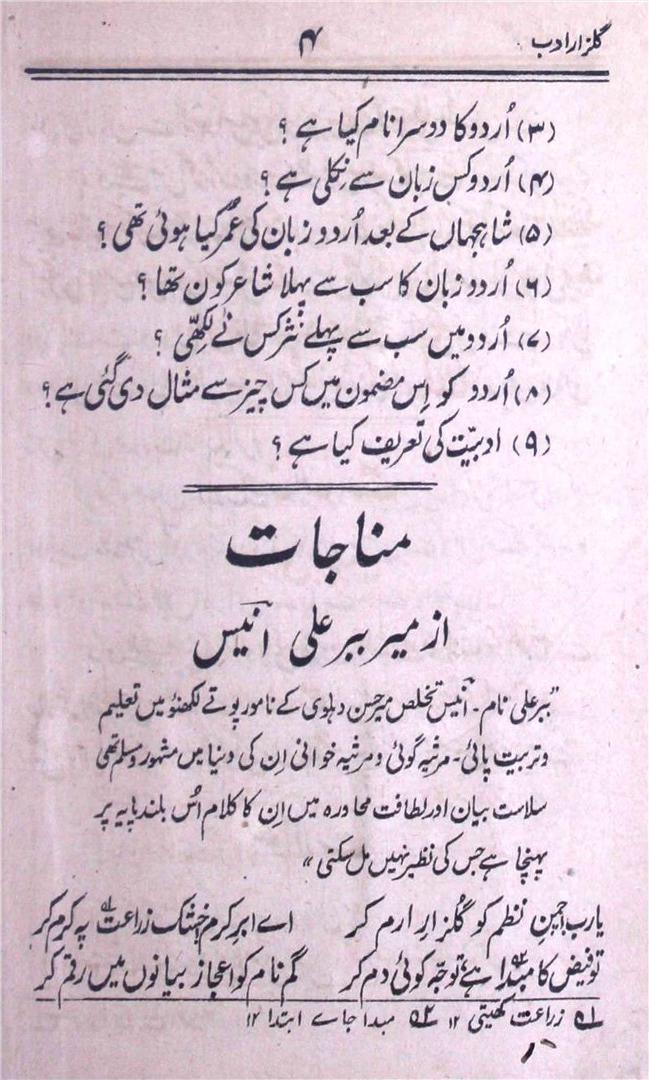 گلزار ادب
۴
(۳) اُردو کا دوسرا نام کیا ہے ؟
(۴) اُردو کس زبان سے نِکلی ہے ؟
(۵) شاہجہاں کے بعد اُردو زبان کی عُمر کیا ہوئی تھی ؟
(۶) اُردو زبان کا سب سے پہلا شاعر کون تھا ؟
(۷) اُردو میں سب سے پہلے نثر کس نے لکھّی ؟
(۸) اُردو کو اِس مضمون میں کس چیز سے مثال دی گئی ہے ؟
(۹) ادبیّت کی تعریف کیا ہے ؟
مناجات
از میر ببر علی انیس
"ببر علی نام۔ انیس تخلص میر حسن دہلوی کے نامور پوتے لکھنؤ میں تعلیم
و تربیت پائی۔ مرثیہ گوئی و مرثیہ خوانی اِن کی دنیا میں مشہور و مسلم تھی
سلاست بیان اور لطافت محاورہ میں اِن کا کلام اُس بلند پایہ پر
پہنچا ہے جس کی نظیر نہیں مل سکتی"
یارب چمنِ نظم کو گلزارِ ارم کر اے ابرِ کرم خشک زراعت لہ پہ کرم کر
تو فیض کا مبدا ۲ہ ہے توجّہ کوئی دم کر گم نام کو اعجاز بیانوں میں رقم کر
لہ زراعت کھیتی ۱۲ ۲ہ مبدا جاے ابتدا ۱۲